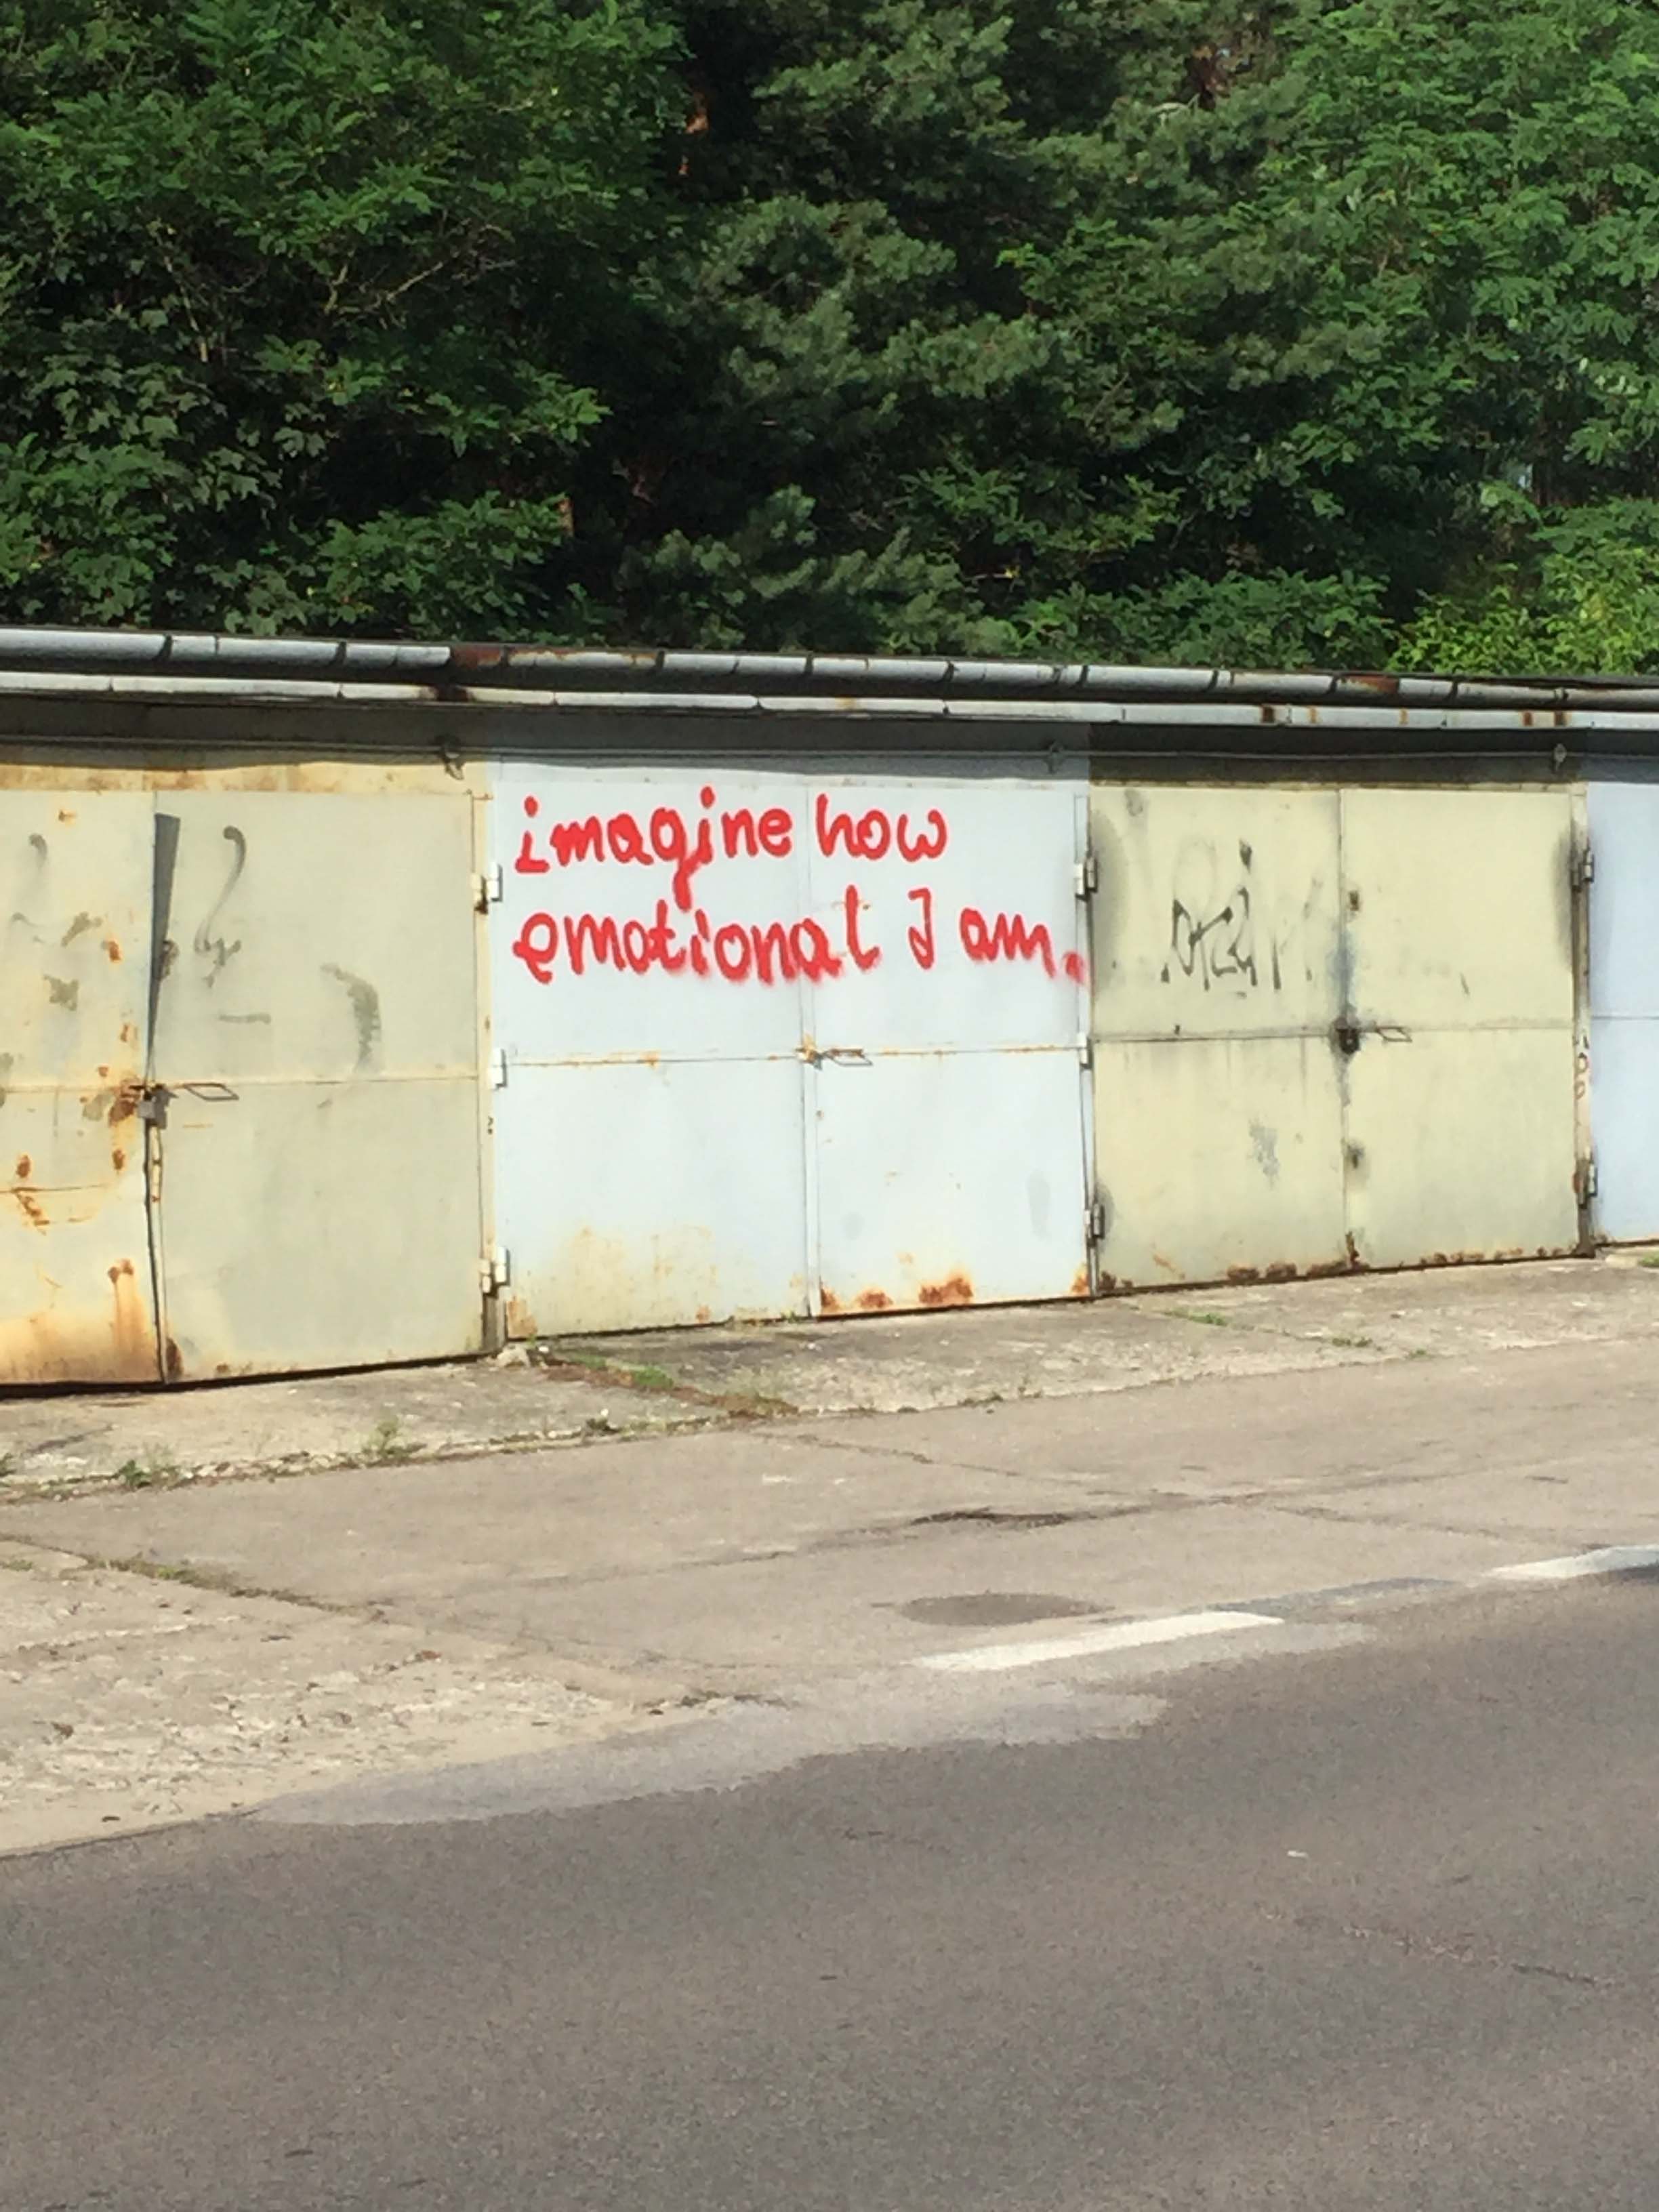 imagine how
emotional I am.